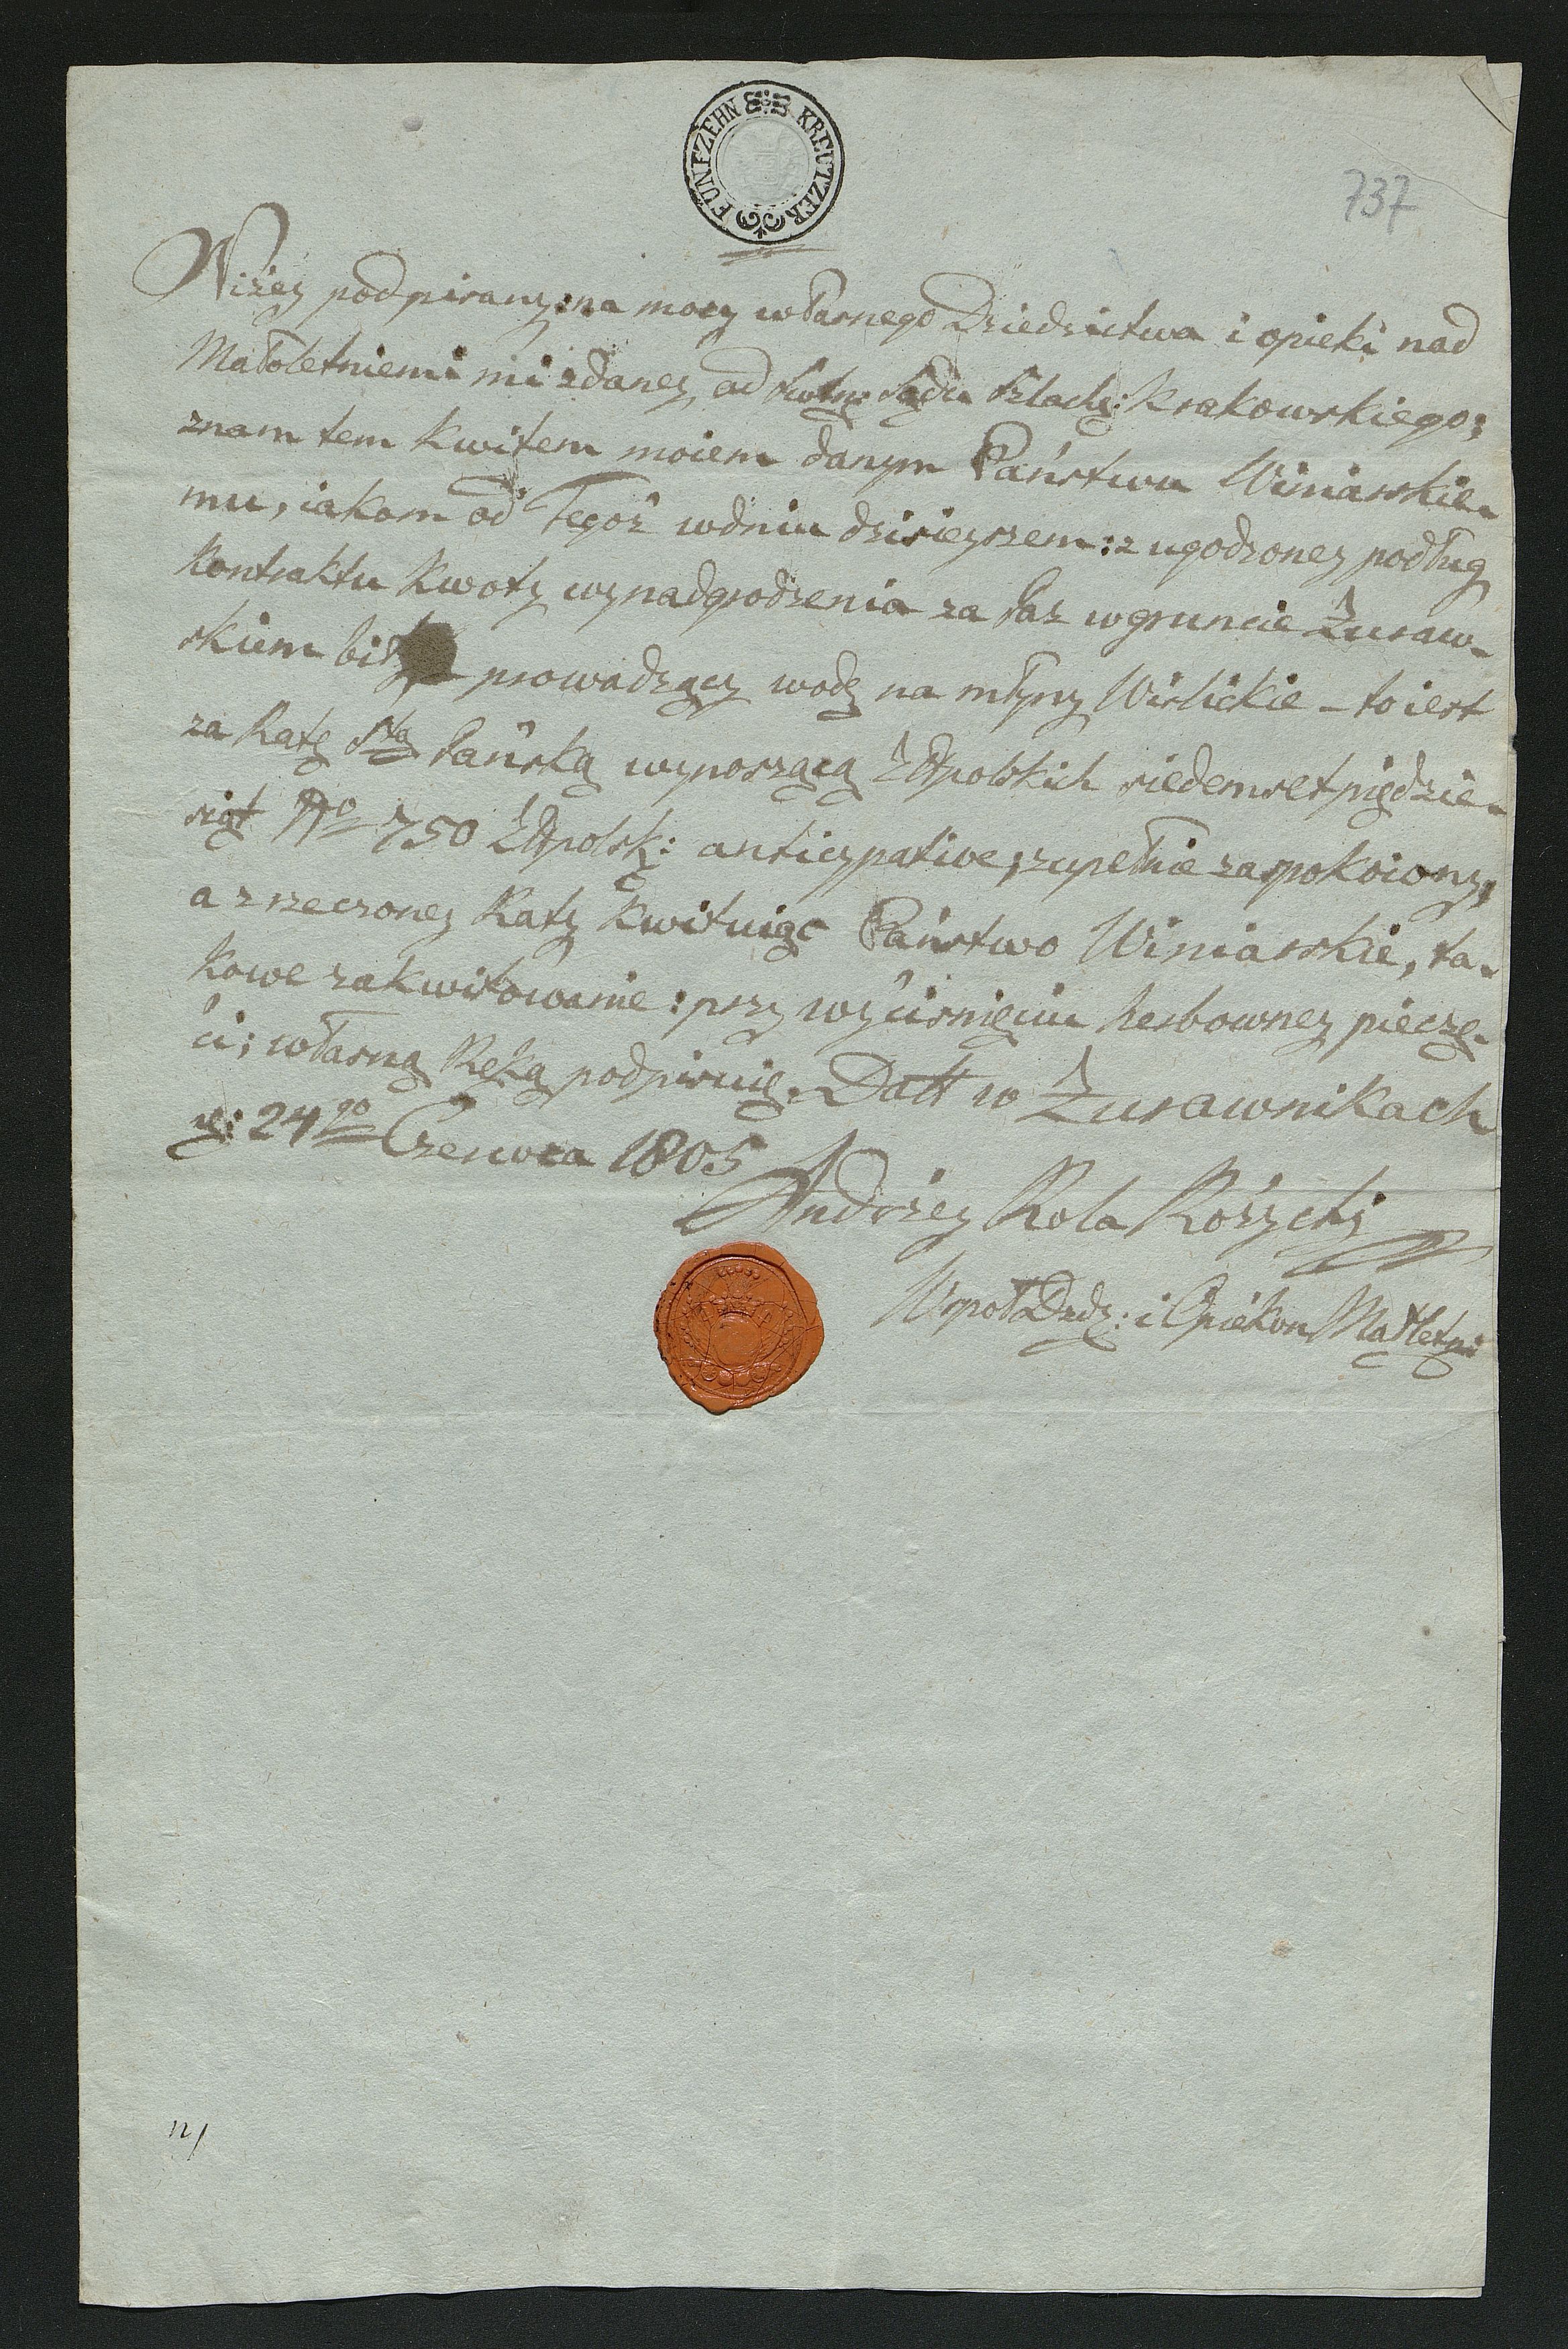 FUNFZEHN KREUTZER
737
Niżey podpisany: na mocy własnego Dziedzictwa i opieki nad
Małoletniemi mi zdaney, od Sądu Szlach: Krakowskiego;
znam tem Kwitem moiem danym Państwu Winiarskie-
mu, iakom od Tegoż wdniu dzisieyszem: z ugodzoney podług
Kontraktu Kwoty wynadgrodzenia za Paz wgruncie Żuraw-
skiem bity prowadzący wodę na młyny Wislickie – to iest
za Ratę S.ta Jańską wynoszącą Złłpolskich siedemset pięдzie-
siąt No 750 Złłpolsk: anticypative; zupełnie zaspokoiony;
a z rzeczoney Raty Kwituiąc Państwo Winiarskie, ta-
kowe zakwitowanie: przy wyciśnięciu herbowney pieczę-
ci; własną Ręką podpisuię. Datt w Żurawnikach
d: 24go Czerwca 1805
Andrzey Rola Rożycki
WspołDzdz: i Opiekon Małletni
n/